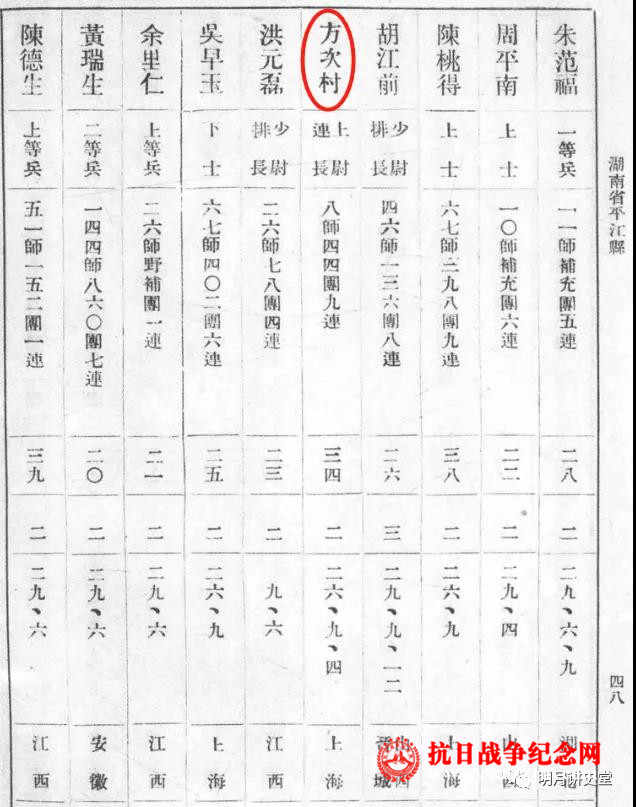 湖南省平江縣 四八
朱范福 一等兵 一一師補充團五連 二八 二 二九、六、九
周平南 上士 一〇師補充團六連 二二 二 二九、四
陳桃得 上士 六七師三九八團九連 三八 二 二六、九 上海
胡江前 少尉排長 四六師一三六團八連 二六 三 二九、九、一二 城
方次村 上尉連長 八師四四團九連 三四 二 二六、九、四 上海
洪元磊 少尉排長 二六師七八團四連 二三 二 九、六 江西
吳早玉 下士 六七師四〇二團六連 二五 二 二六、九 上海
余里仁 上等兵 二六師野補團一連 二一 二 二九、六 江西
黃瑞生 二等兵 一四四師八六〇團七連 二〇 二 二九、六 安徽
陳德生 上等兵 五一師一五二團一連 三九 二 二九、六 江西
抗日战争纪念网
明月讲史堂